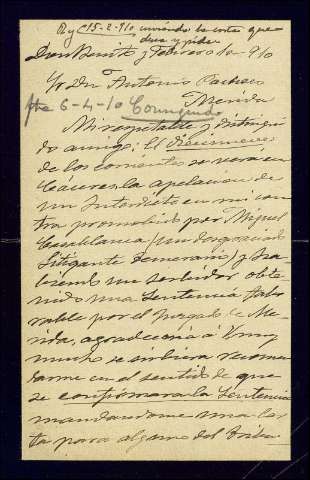 R y C 15-2-910 enviando la carta que
dice y pide
Don Benito y Febrero de 910
Sr Dn Antonio Pacheco
Merida
fha 6-4-10 Comunicado
Mi respetable y distingui
do amigo: El diecinueve
de los corrientes se verá en
Caceres la apelación de
un Interdicto en mi con
tra promovido por Miguel
Casablanca (un desgraciado
litigante temerario) y ha-
biendo un servidor obte-
nido una Sentencia favo
rable por el Juzgado de Me-
rida, agradeceria á V. muy
mucho se sirviera recomen
darme en el sentido de que
se confirmara la Sentencia
mandandome una car
ta para alguno del Tribu-